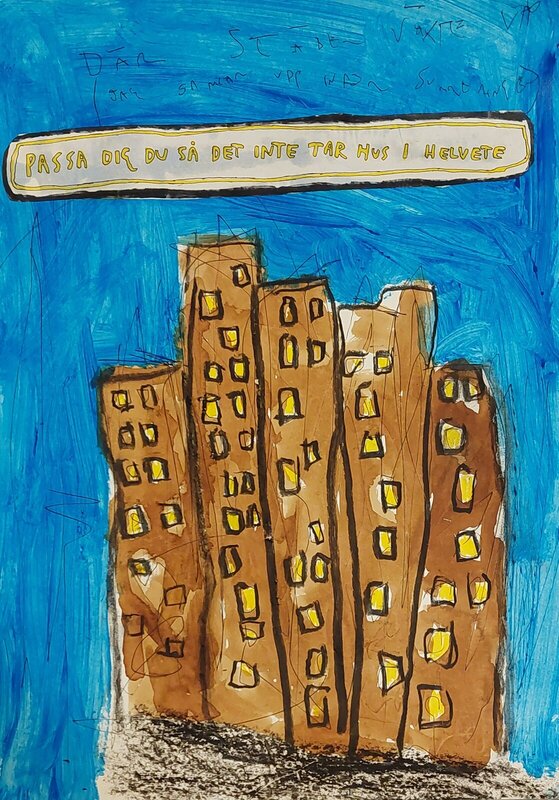 DÄR STADEN VÄXTE
JAG UPP
PASSA DIG DU SÅ DET INTE TAR HUS I HELVETE